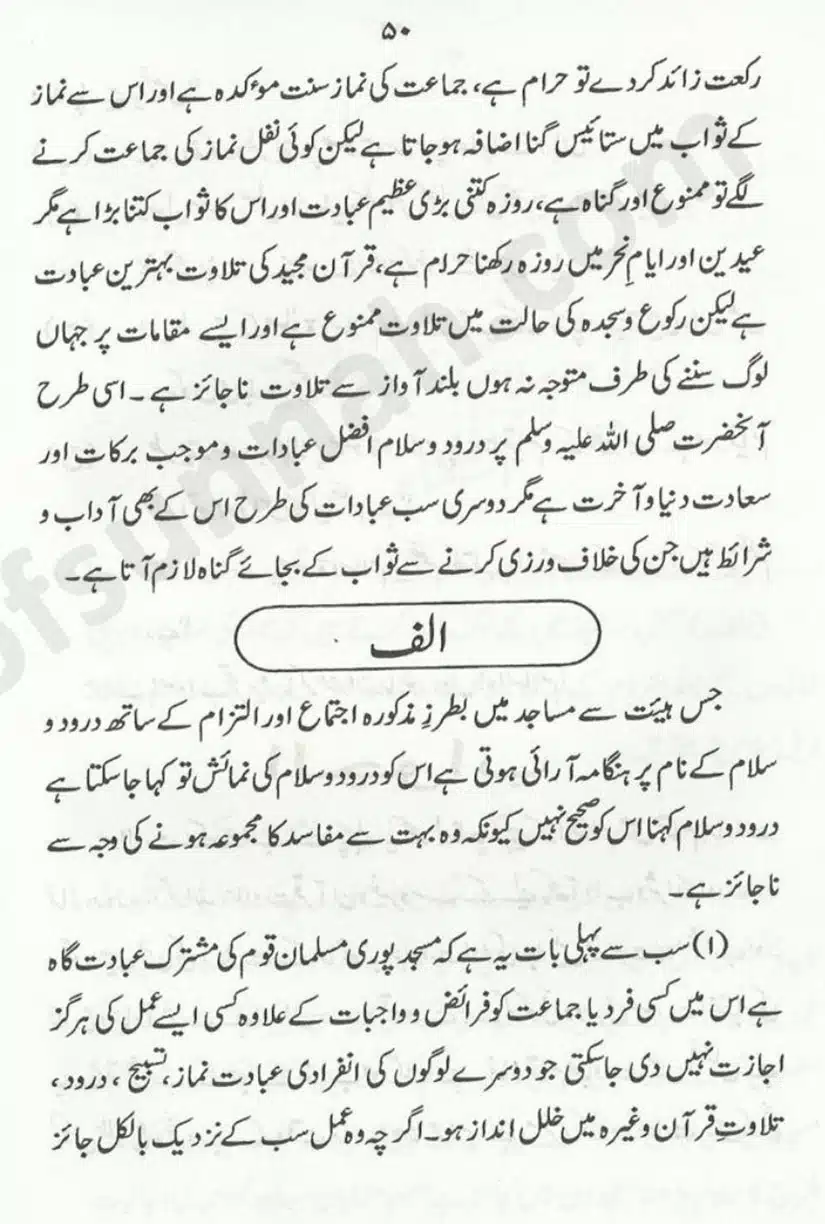 ۵۰
رکعت زائد کردے تو حرام ہے، جماعت کی نماز سنت مؤکدہ ہے اور اس سے نماز
کے ثواب میں ستائیس گنا اضافہ ہوجاتا ہے لیکن کوئی نفل نماز کی جماعت کرنے
لگے تو ممنوع اور گناہ ہے، روزہ کتنی بڑی عظیم عبادت اور اس کا ثواب کتنا بڑا ہے مگر
عیدین اور ایامِ نحر میں روزہ رکھنا حرام ہے، قرآن مجید کی تلاوت بہترین عبادت
ہے لیکن رکوع وسجدہ کی حالت میں تلاوت ممنوع ہے اور ایسے مقامات پر جہاں
لوگ سننے کی طرف متوجہ نہ ہوں بلند آواز سے تلاوت ناجائز ہے۔ اسی طرح
آنحضرت صلی اللہ علیہ وسلم پر درود وسلام افضل عبادات وموجب برکات اور
سعادت دنیا وآخرت ہے مگر دوسری سب عبادات کی طرح اس کے بھی آداب و
شرائط ہیں جن کی خلاف ورزی کرنے سے ثواب کے بجائے گناہ لازم آتا ہے۔
الف
جس ہیئت سے مساجد میں بطرزِ مذکورہ اجتماع اور التزام کے ساتھ درود و
سلام کے نام پر ہنگامہ آرائی ہوتی ہے اس کو درود وسلام کی نمائش تو کہا جاسکتا ہے
درود وسلام کہنا اس کو صحیح نہیں کیونکہ وہ بہت سے مفاسد کا مجموعہ ہونے کی وجہ سے
ناجائز ہے۔
(۱) سب سے پہلی بات یہ ہے کہ مسجد پوری مسلمان قوم کی مشترک عبادت گاہ
ہے اس میں کسی فرد یا جماعت کو فرائض و واجبات کے علاوہ کسی ایسے عمل کی ہرگز
اجازت نہیں دی جاسکتی جو دوسرے لوگوں کی انفرادی عبادت نماز، تسبیح، درود،
تلاوتِ قرآن وغیرہ میں خلل انداز ہو۔ اگرچہ وہ عمل سب کے نزدیک بالکل جائز
ofsunnah.com